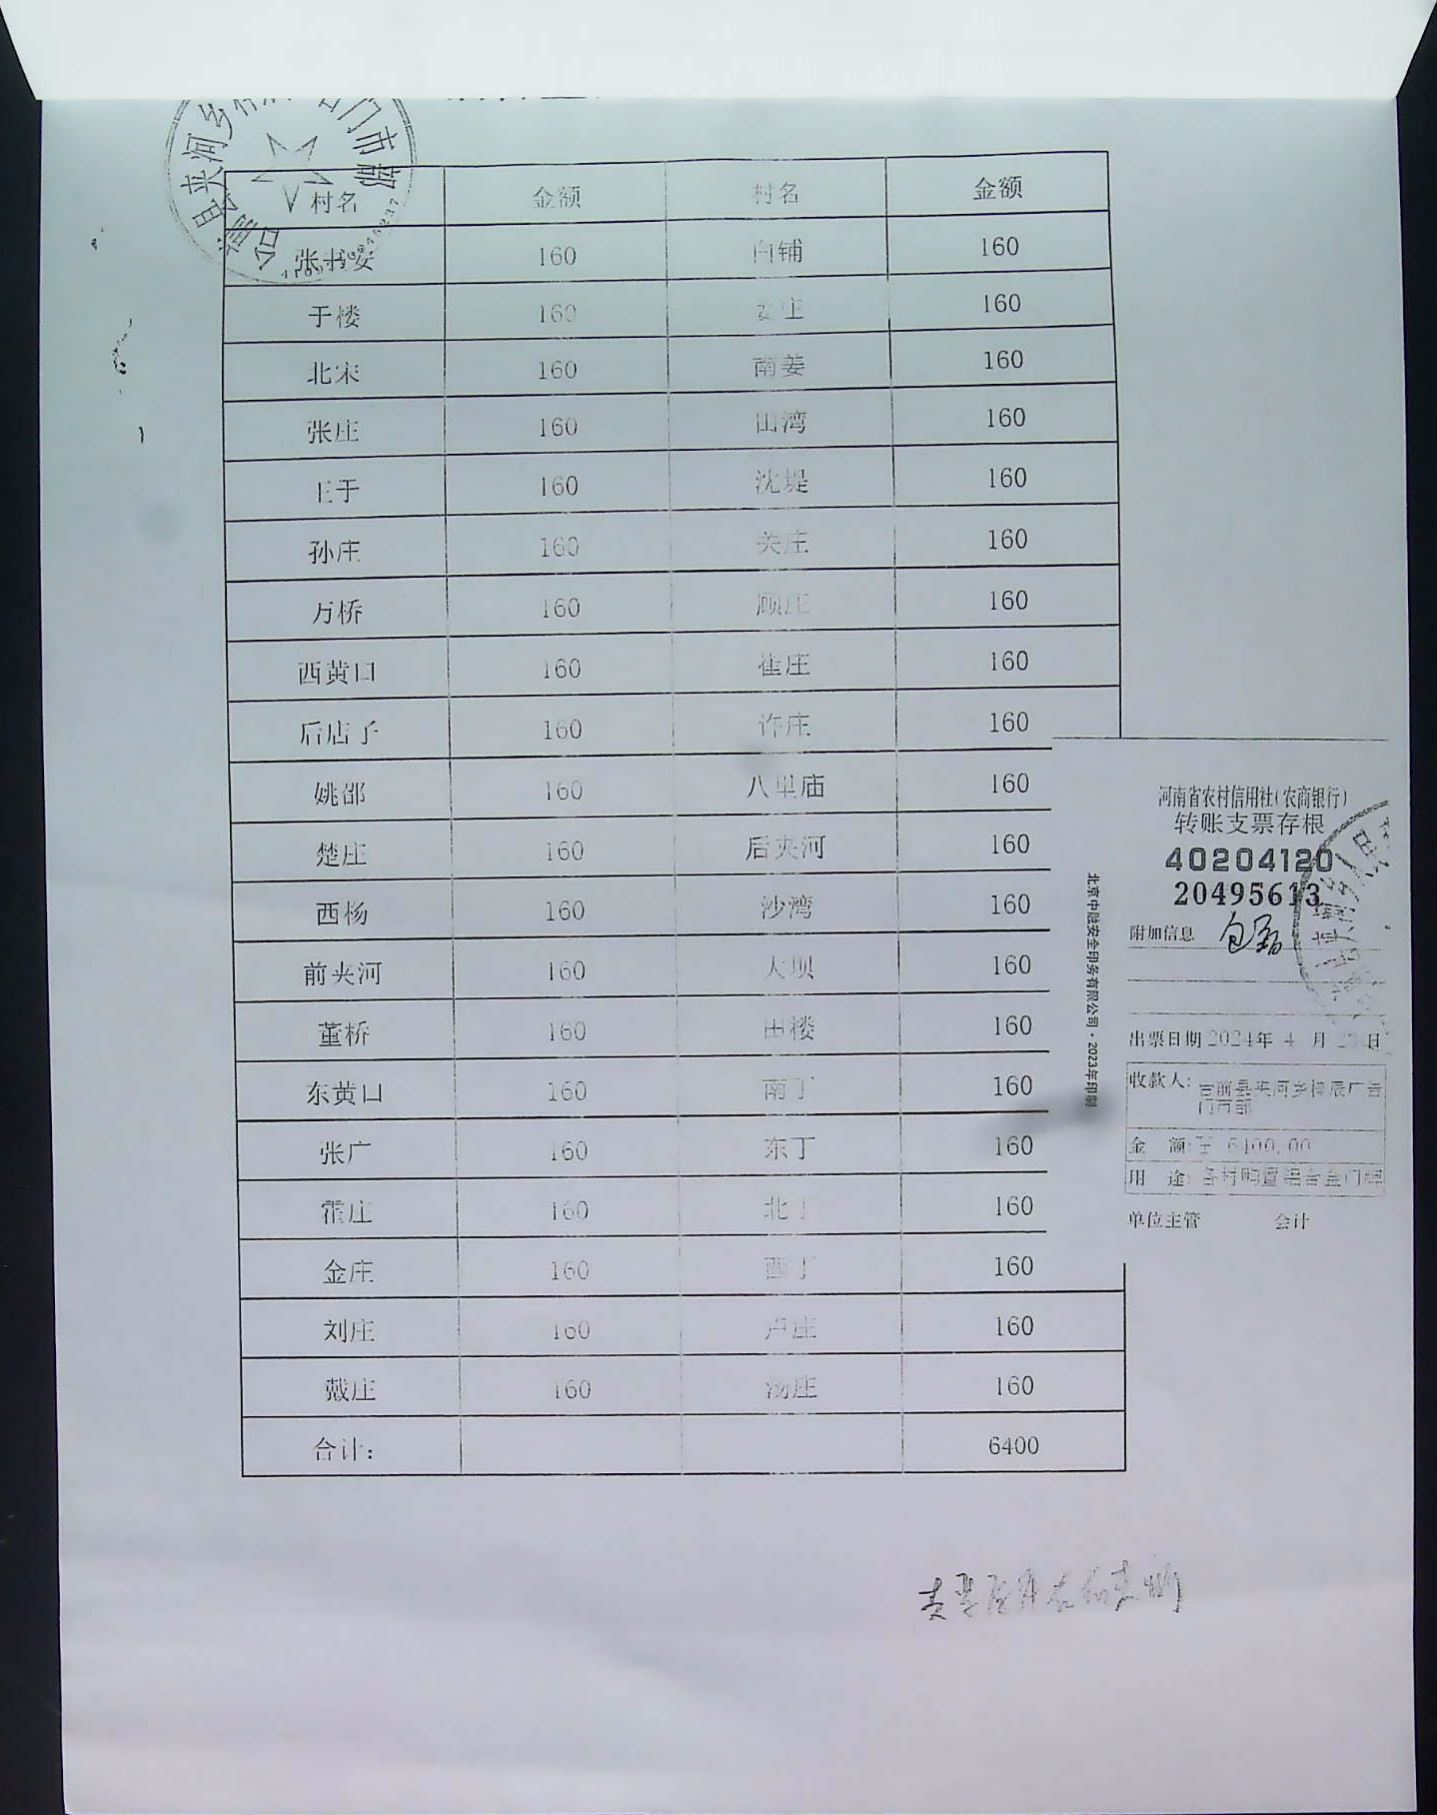 村名 金额 村名 金额
张书安 160 白铺 160
于楼 160 姜庄 160
北宋 160 南姜 160
张庄 160 田湾 160
王于 160 沈堤 160
孙庄 160 关庄 160
万桥 160 顾庄 160
西黄口 160 崔庄 160
后店子 160 许庄 160
姚邵 160 八里庙 160
楚庄 160 后夹河 160
西杨 160 沙湾 160
前夹河 160 大坝 160
董桥 160 田楼 160
东黄口 160 南丁 160
张广 160 东丁 160
霍庄 160 北丁 160
金庄 160 西丁 160
刘庄 160 卢庄 160
戴庄 160 汤庄 160
合计： 6400
河南省农村信用社(农商银行)
转账支票存根
40204120
20495613
附加信息
出票日期 2024年 4 月 日
收款人: 台前县夹河乡 广告
门市部
金 额: 6400.00
用 途: 各村购置铝合金门牌
单位主管 会计
北京中融安全印务有限公司·2023年印制